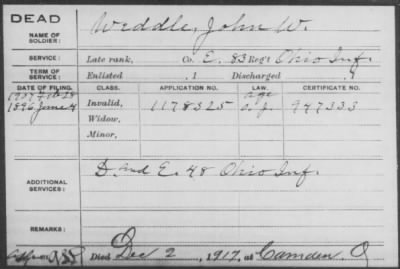 DEAD
NAME OF SOLDIER: Weddle, John W.
SERVICE: Late rank, Co. E. 83 Reg't Ohio Inf.
TERM OF SERVICE: Enlisted , 1 Discharged , 1
DATE OF FILING. CLASS. APPLICATION NO. LAW. CERTIFICATE NO.
1907 Feb 28 age
1896 June 4 Invalid, 1178325 947333
Widow,
Minor,
ADDITIONAL SERVICES: D. and E. 48 Ohio Inf.
REMARKS:
Died Dec 2, 1917, at Camden, O